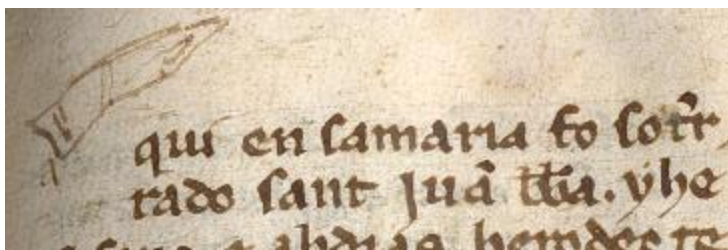 qui en samaria fo sot̃r
rado sant Juã bb̃a. yhe
abdias